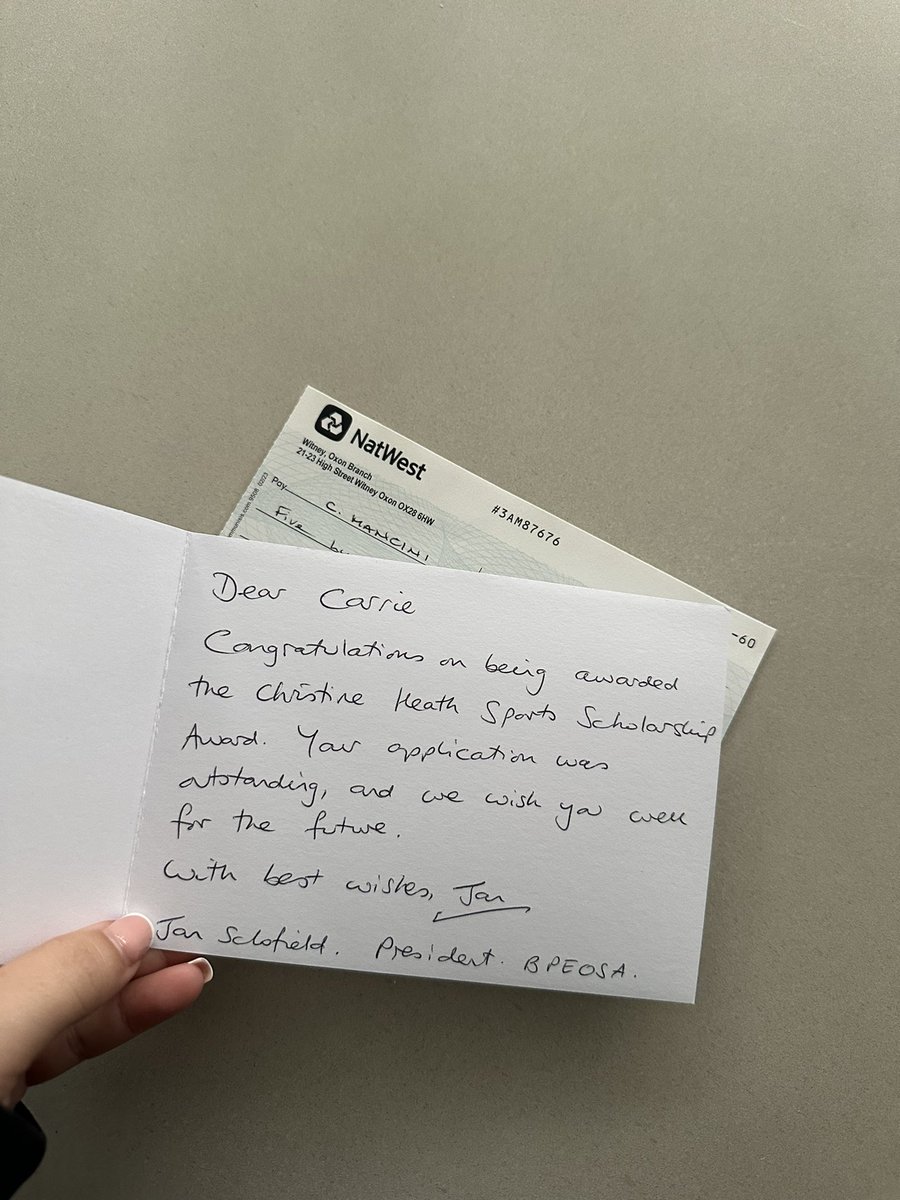 NatWest
Witney, Oxon Branch
21-23 High Street Witney Oxon OX28 6HW
#3AM87676
Pay C. MANCINI
Five
-60
Dear Carrie
Congratulations on being awarded
the Christine Heath Sports Scholarship
Award. Your application was
outstanding, and we wish you well
for the future.
With best wishes, Jan
Jan Schofield. President. BPEOSA.